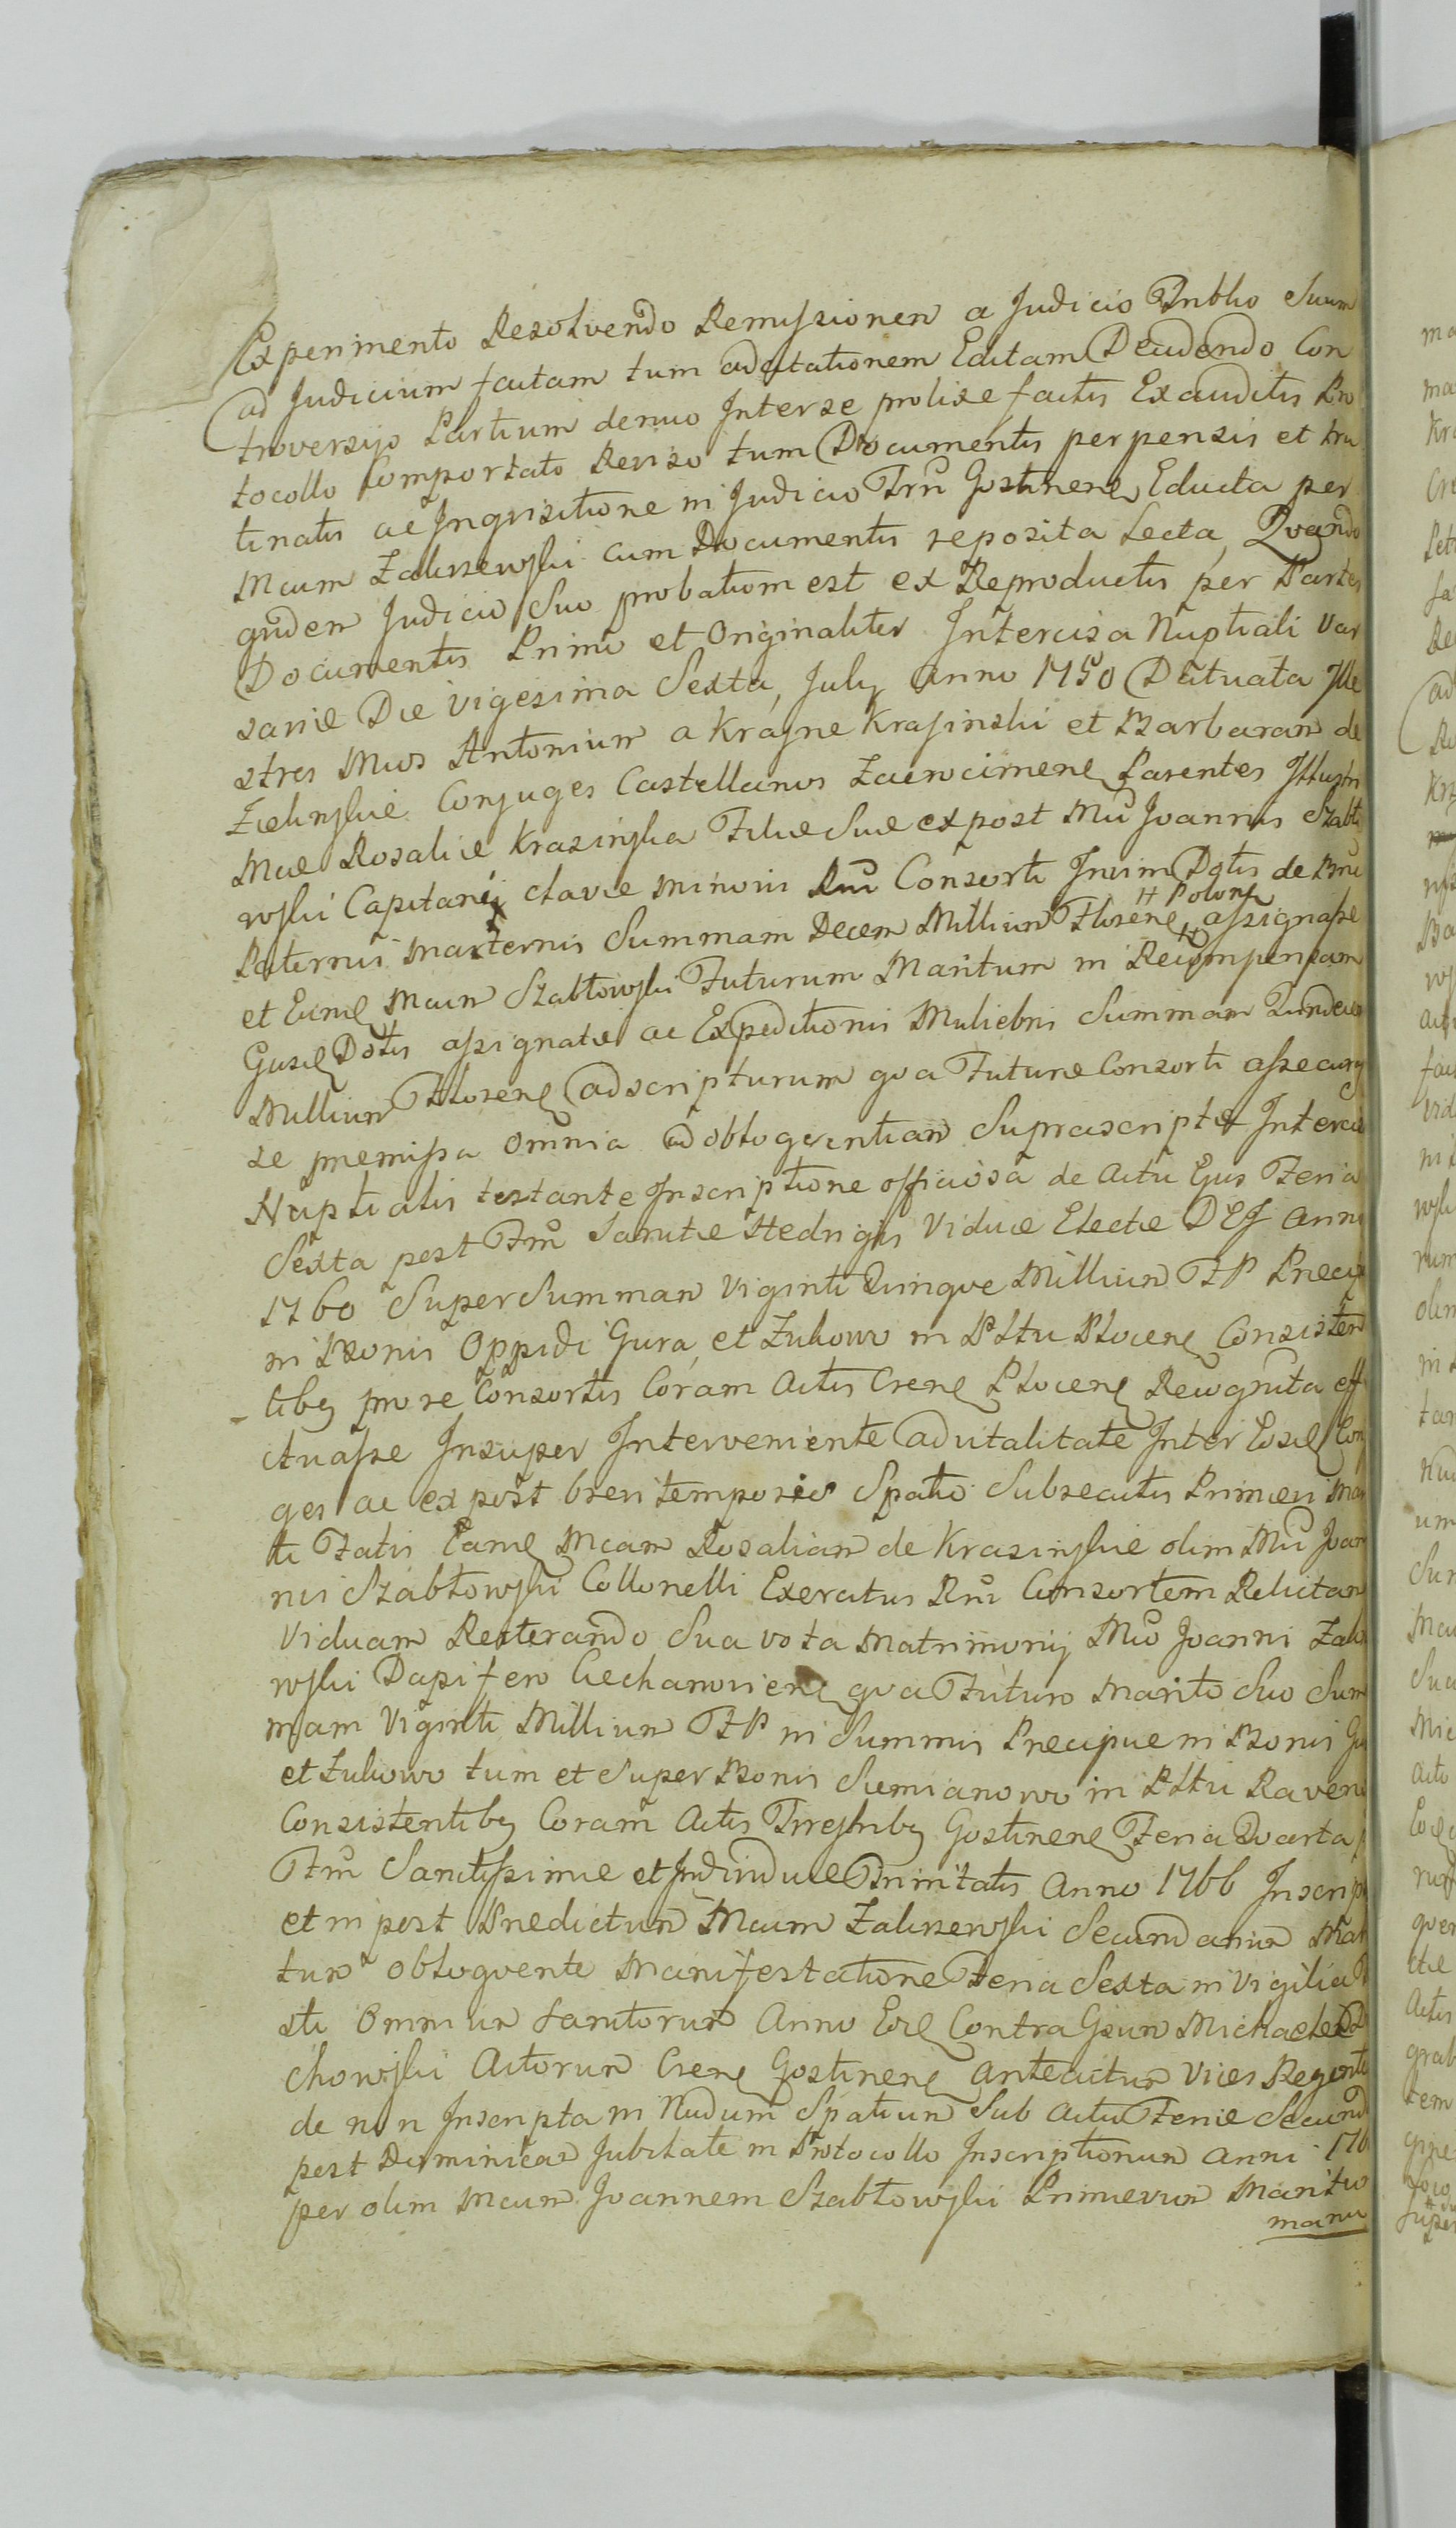 Experimento Resolvendo Remissionem a Judicio Tribli Suum
ad Judicium factam tum ad citationem Editam Decidendo Con
troversijs Partium denuo Inter se prolixe factis Exauditis Pro
tocollo Comportato Reviso tum Documentis perpensis et tru
tinatis ac Inqvisitione in Judicio Trri Gostinen Educta per
Mcum Zaluszewski cum Documentis reposita Lecta, Qvando
qvidem Judicio Suo probatum est ex Reproductis per Partes
Documentis Primo et Originaliter Intercisa Nuptiali Var
saviæ Die Vigesima Sexta July Anno 1750 Datuata Illu
stres Mcos Antonium a Krasne Krasinski et Barbaram de
Zielinskie Conjuges Castellanos Zacrocimen Parentes Illustri
Mcæ Rosaliæ Krasinska Filiæ Suæ ex post Mci Joannis Szabło
wski Capitanei clavæ minoris Rni Consorti Inim Dotis de Bonis
Paternis Maternis Summam Decem Millium Floren # assignasse
# Polon
et Eund Mcum Szabłowski Futurum Maritum in Recompensam
Ejusd Dotis assignatæ ac Expeditionis Muliebris Summam Quindecim
Millium Floren adscripturum qva Futuræ Consorti assecuras
se premissa omnia ad obloqventiam Suprascriptæ Intercisæ
Nuptialis testante Inscriptione officiosa de Actu Ejus Feria
Sexta post Ftm Sanctæ Hedvigis Viduæ Electæ DEJ Anni
1760 Super Summam Viginti Qvinqve Millium FP Precip
in Bonis Oppidi Gura et Zukowo in Dttu Plocen Consisten
tibq pro re Consortis Coram Actis Cren Plocen Recognita effe
ctuasse Insuper Interveniente advitalitate Inter Eosd Conju
ges ac ex post brevi temporis Spatio Subsecutis Primævi Mari
ti Fatis Eand Mcam Rosaliam de Krasinskie olim Mci Joan
nis Szabłowski Collonelli Exercitus Rni Consortem Relictam
Viduam Reiterando Sua vota Matrimonij Mco Joanni Zalu
wski Dapifero Ciechanovien qva Futuro Marito Suo Sum
mam Viginti Millium FP in Summis Precipue in Bonis Gu
et Zukowo tum et Super Bonis Siemianowo in Dttu Raven
Consistentibq Coram Actis Trrestribq Gostinen Feria Qvarta p
Ftm Sanctissimæ et Individuæ Trinitatis Anno 1766 Inscrip
et in post Predictum Mcum Zaluszewski Secundarium Mari
tum obloqvente Manifestatione Feria Sexta in Vigilia Fe
sti Omnium Sanctorum Anno Eod Contra Gsum Michaelem
chowski Actorum Cren Gostinen Anteactum Vices Regente
de non Inscripta in Nudum Spatium Sub Actu Feriæ Secund
post Dominicam Jubilate in Protocollo Inscriptionum Anni 176
per olim Mcum Joannem Szabłowski Primævum Maritum
manu